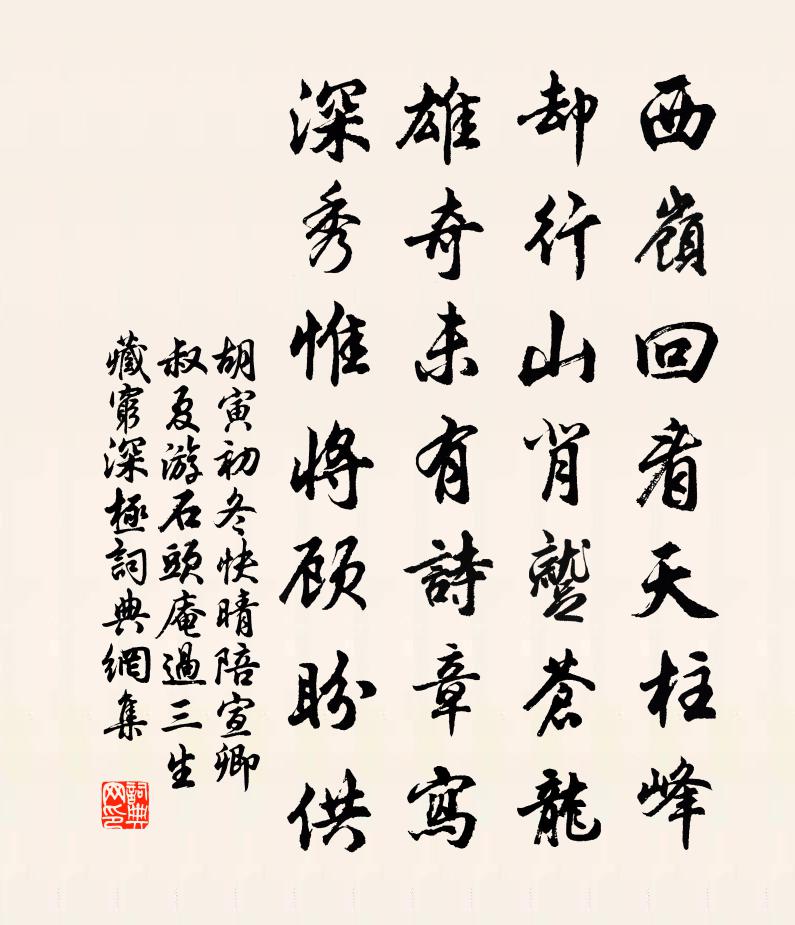 西嶺回看天柱峰
却行山背蹔蒼龍
雄奇未有詩章寫
深秀惟將顾盼供
胡寅初冬快晴陪宣卿
叔夏游石頭庵過三生
藏窮深極詞典網集
詞典
网印